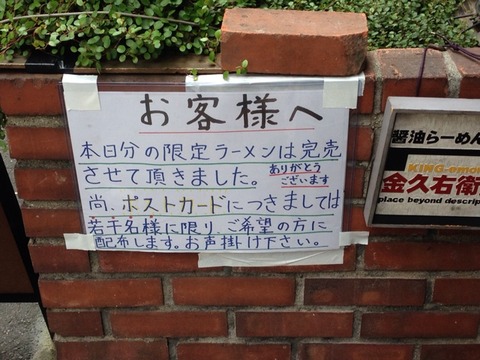 お客様へ
本日分の限定ラーメンは完売
させて頂きました。ありがとう
ございます
尚、ポストカードにつきましては
若干名様に限り ご希望の方に
配布します。お声掛け下さい。
醤油らーめん
KING-emon
金久右衛
place beyond descrip